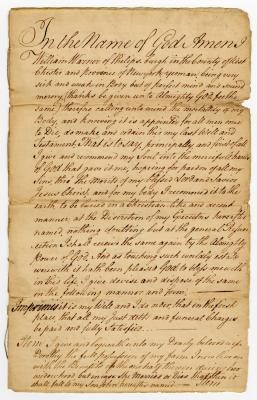 In the Name of God Amen I
William Warner of Philips burgh in the County of West
Chester and province of New york yeoman, being very
sick and weak in Body but of perfect mind and sound
memory (thanks be given unto Almighty God for the
same) therefore calling unto mind the mortality of my
Body, and knowing it is appointed for all men once
to Die, do make and ordain this my Last Will and
Testament, That is to say, principally and first of all
I give and recommend my Soul into the mercifull hands
of God that gave it me, hoping for pardon of all my
sins, thro' the Merits of my Blessed Lord and Saviour
Jesus Christ, and for my body I recommend it to the
earth to be buried in a Christian like and decent
manner at the Discretion of my Executors hereafter
named, nothing doubting but at the general Resurr
ection I shall receive the same again by the Almighty
Power of God. And as touching such worldly estate
wherewith it hath been pleased God to bless me with
in this life, I give devise and dispose of the same
in the following manner and form
Imprimis it is my Will and I do order that in the first
place that all my Just debts and funeral Charges
be paid and fully satisfied
Item I give and bequeath unto my Dearly beloved wife
Dorothy the full possession of my farm
with the Benefits thereof during her
widowhood but in case She Marries or Dies
shall fall to my Son John hereafter named Item